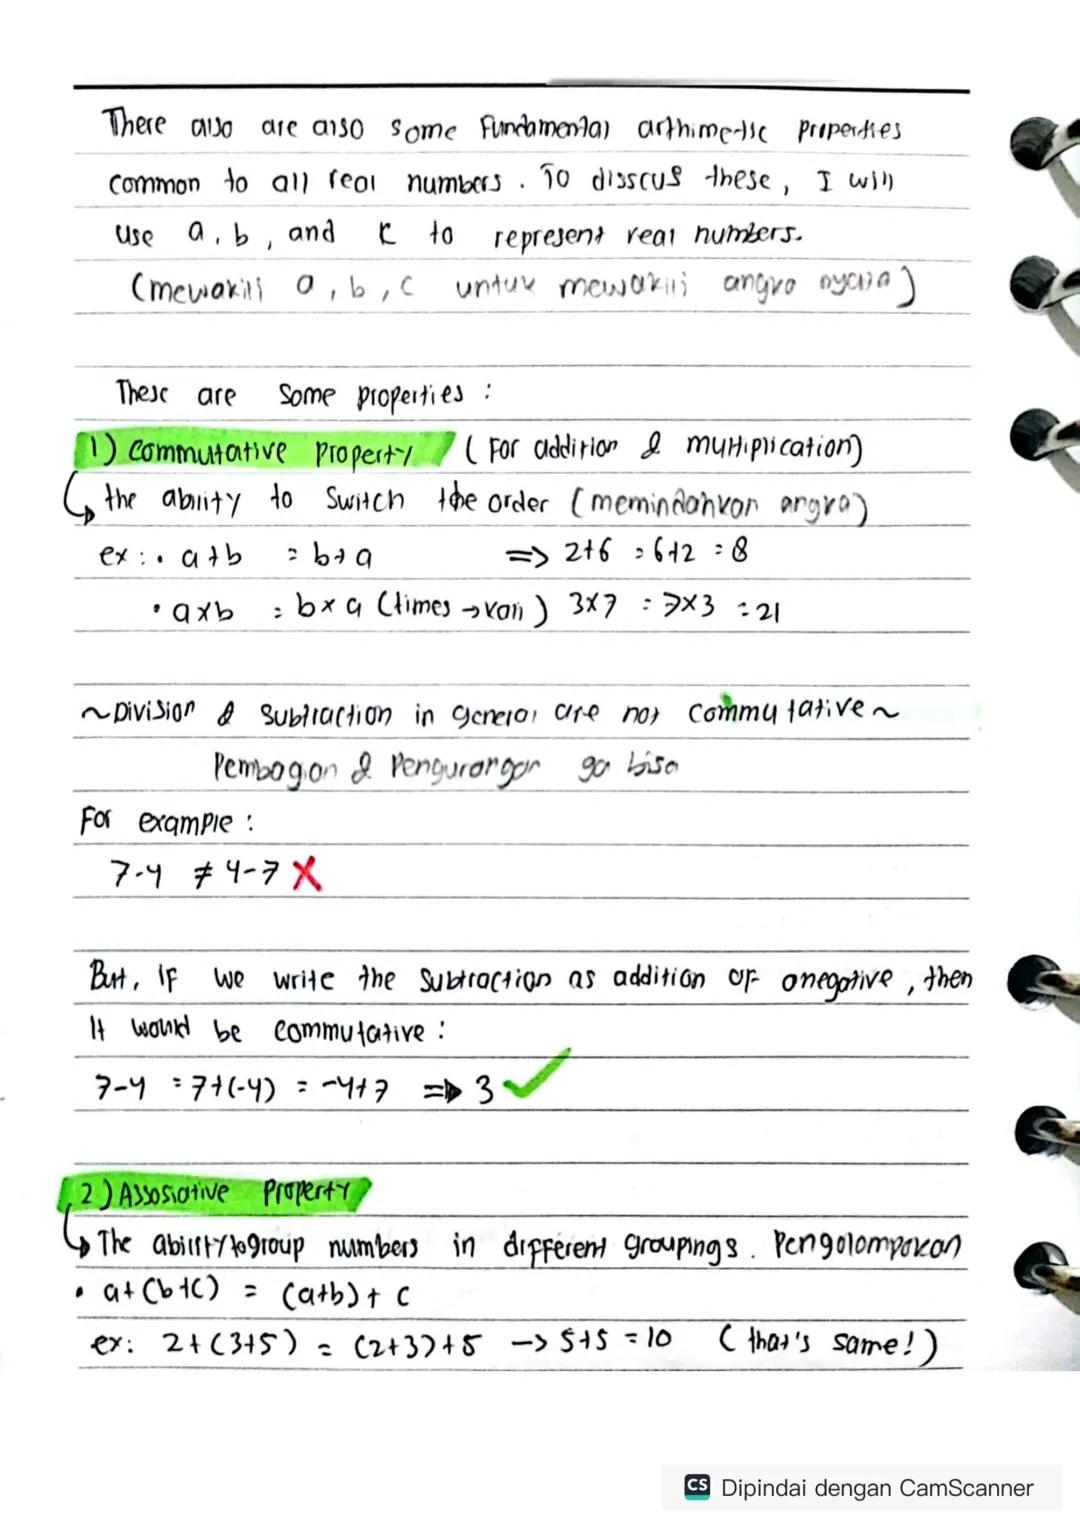 There also are also some Fundamental arthimetic properties
common to all real numbers. To disscus these, I will
use a, b, and c to represent real numbers.
(mewakili a, b, c untuk mewakili angka nyata)
These are some properties:
1) Commutative Property (For addition & multiplication)
the ability to switch the order (memindahkan angka)
ex: • a+b = b+a => 2+6 = 6+2 = 8
• axb = bxa (times → kali) 3x7 = 7x3 = 21
~Division & Subtraction in general are not commutative~
Pembagian & Pengurangan ga bisa
For example:
7-4 ≠ 4-7 X
But, if we write the Subtraction as addition of a negative, then
It would be commutative:
7-4 = 7+(-4) = -4+7 => 3 ✓
2) Assosiative Property
The ability to group numbers in different groupings. Pengolompokan
• a+(b+c) = (a+b)+c
ex: 2+(3+5) = (2+3)+5 -> 5+5 = 10 (that's same!)
CS Dipindai dengan CamScanner